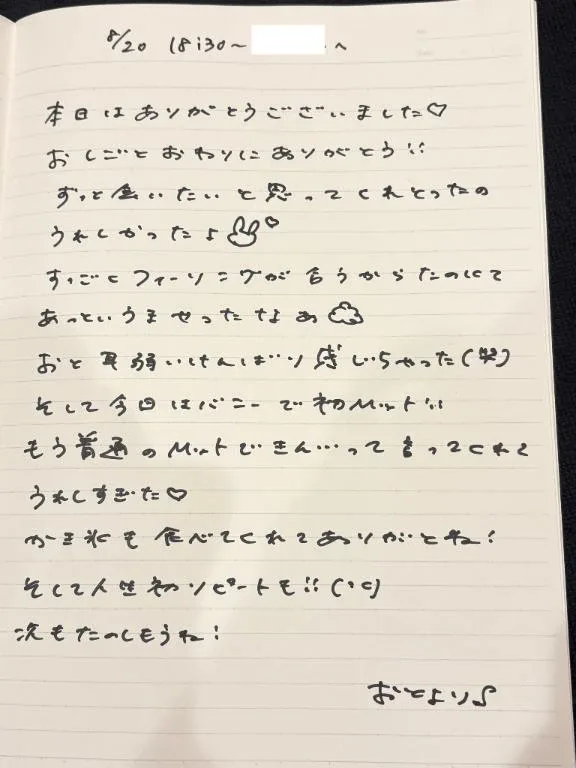 8/20 18:30~ へ
本日はありがとうございました♡
おしごとおわりにありがとう!!
ずっと会いたいと思ってくれとったの
うれしかったよ♡
すっごくフィーリングが合うからたのしくて
あっというまやったなぁ
おと耳弱いけんばり感じちゃった(笑)
そして今日はバニーで初Mット!!
もう普通のMットできん…って言ってくれて
うれしすぎた♡
かき氷も食べてくれてありがとね!
そして人生初リピートも!!
次もたのしもうね!
おとより♪